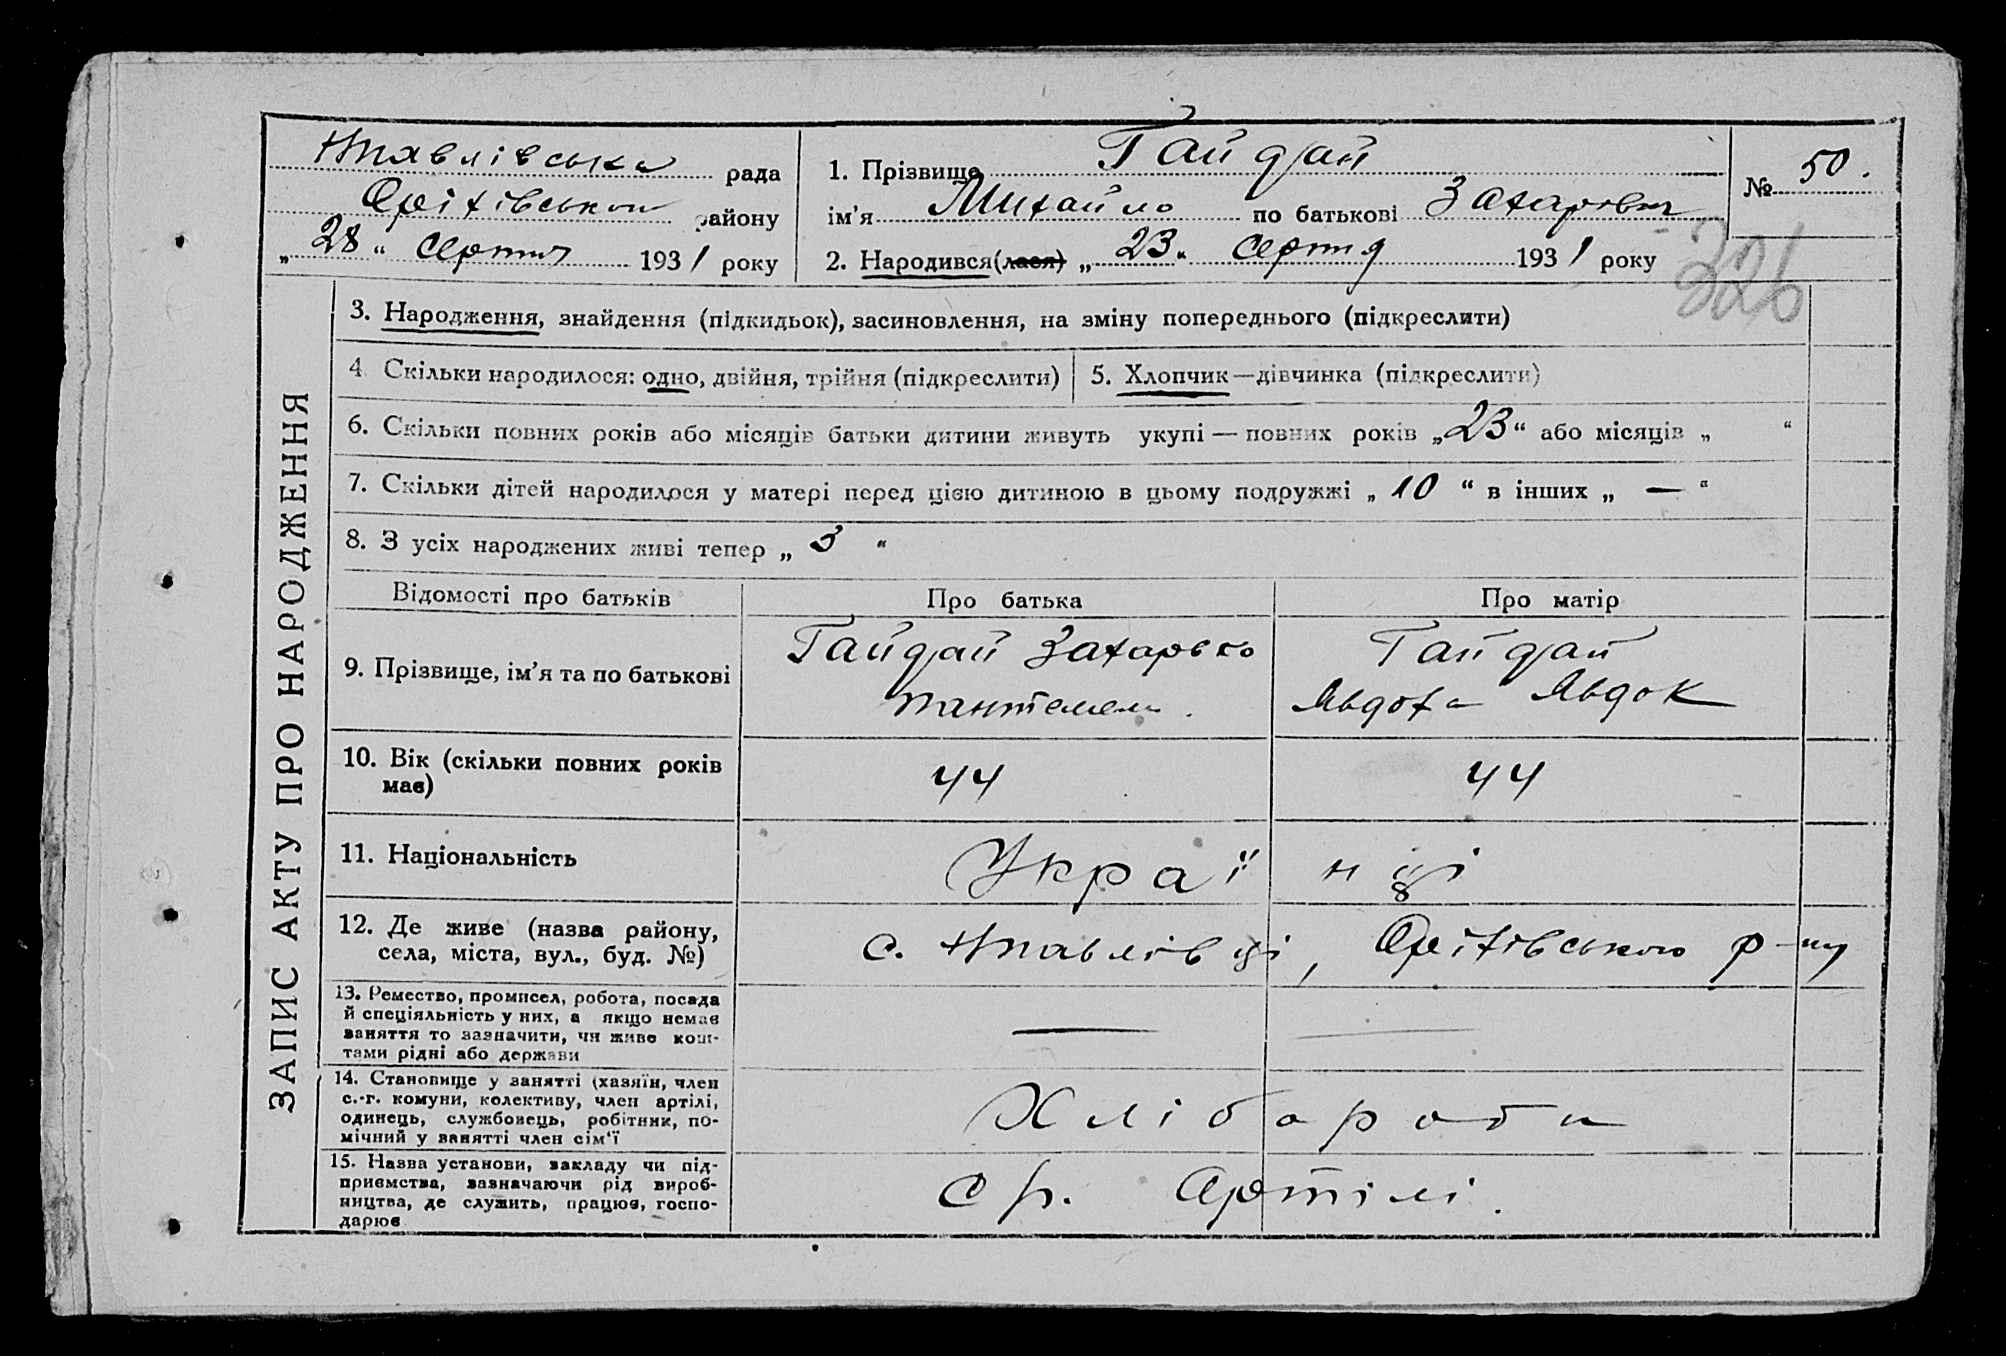 Нпавлівська рада
Оріхівського району
„28“ серпня 1931 року
1. Прізвище Гайдай
ім'я Михайло по батькові Захарович
2. Народився(лася) „23“ серпня 1931 року
№ 50.
326
ЗАПИС АКТУ ПРО НАРОДЖЕННЯ
3. Народження, знайдення (підкидьок), засиновлення, на зміну попереднього (підкреслити)
4. Скільки народилося: одно, двійня, трійня (підкреслити)
5. Хлопчик—дівчинка (підкреслити)
6. Скільки повних років або місяців батьки дитини живуть укупі — повних років „23“ або місяців „ “
7. Скільки дітей народилося у матері перед цією дитиною в цьому подружжі „10“ в інших „—“
8. З усіх народжених живі тепер „3“
Відомості про батьків
Про батька
Про матір
9. Прізвище, ім'я та по батькові
Гайдай Захарько
Пантелем.
Гайдай
Явдоха Явдок
10. Вік (скільки повних років
має)
44
44
11. Національність
Українці
12. Де живе (назва району,
села, міста, вул., буд. №)
с. Нпавлівці, Оріхівського р-ну
13. Ремество, промисел, робота, посада
й спеціяльність у них, а якщо немає
заняття то зазначити, чи живе кош-
тами рідні або держави
— —
14. Становище у занятті (хазяїн, член
с.-г. комуни, колективу, член артілі,
одинець, службовець, робітник, по-
мічний у занятті член сім'ї
Хлібороби
15. Назва установи, закладу чи під-
приємства, зазначаючи рід вироб-
ництва, де служить, працює, госпо-
дарює
Ср. Артілі.